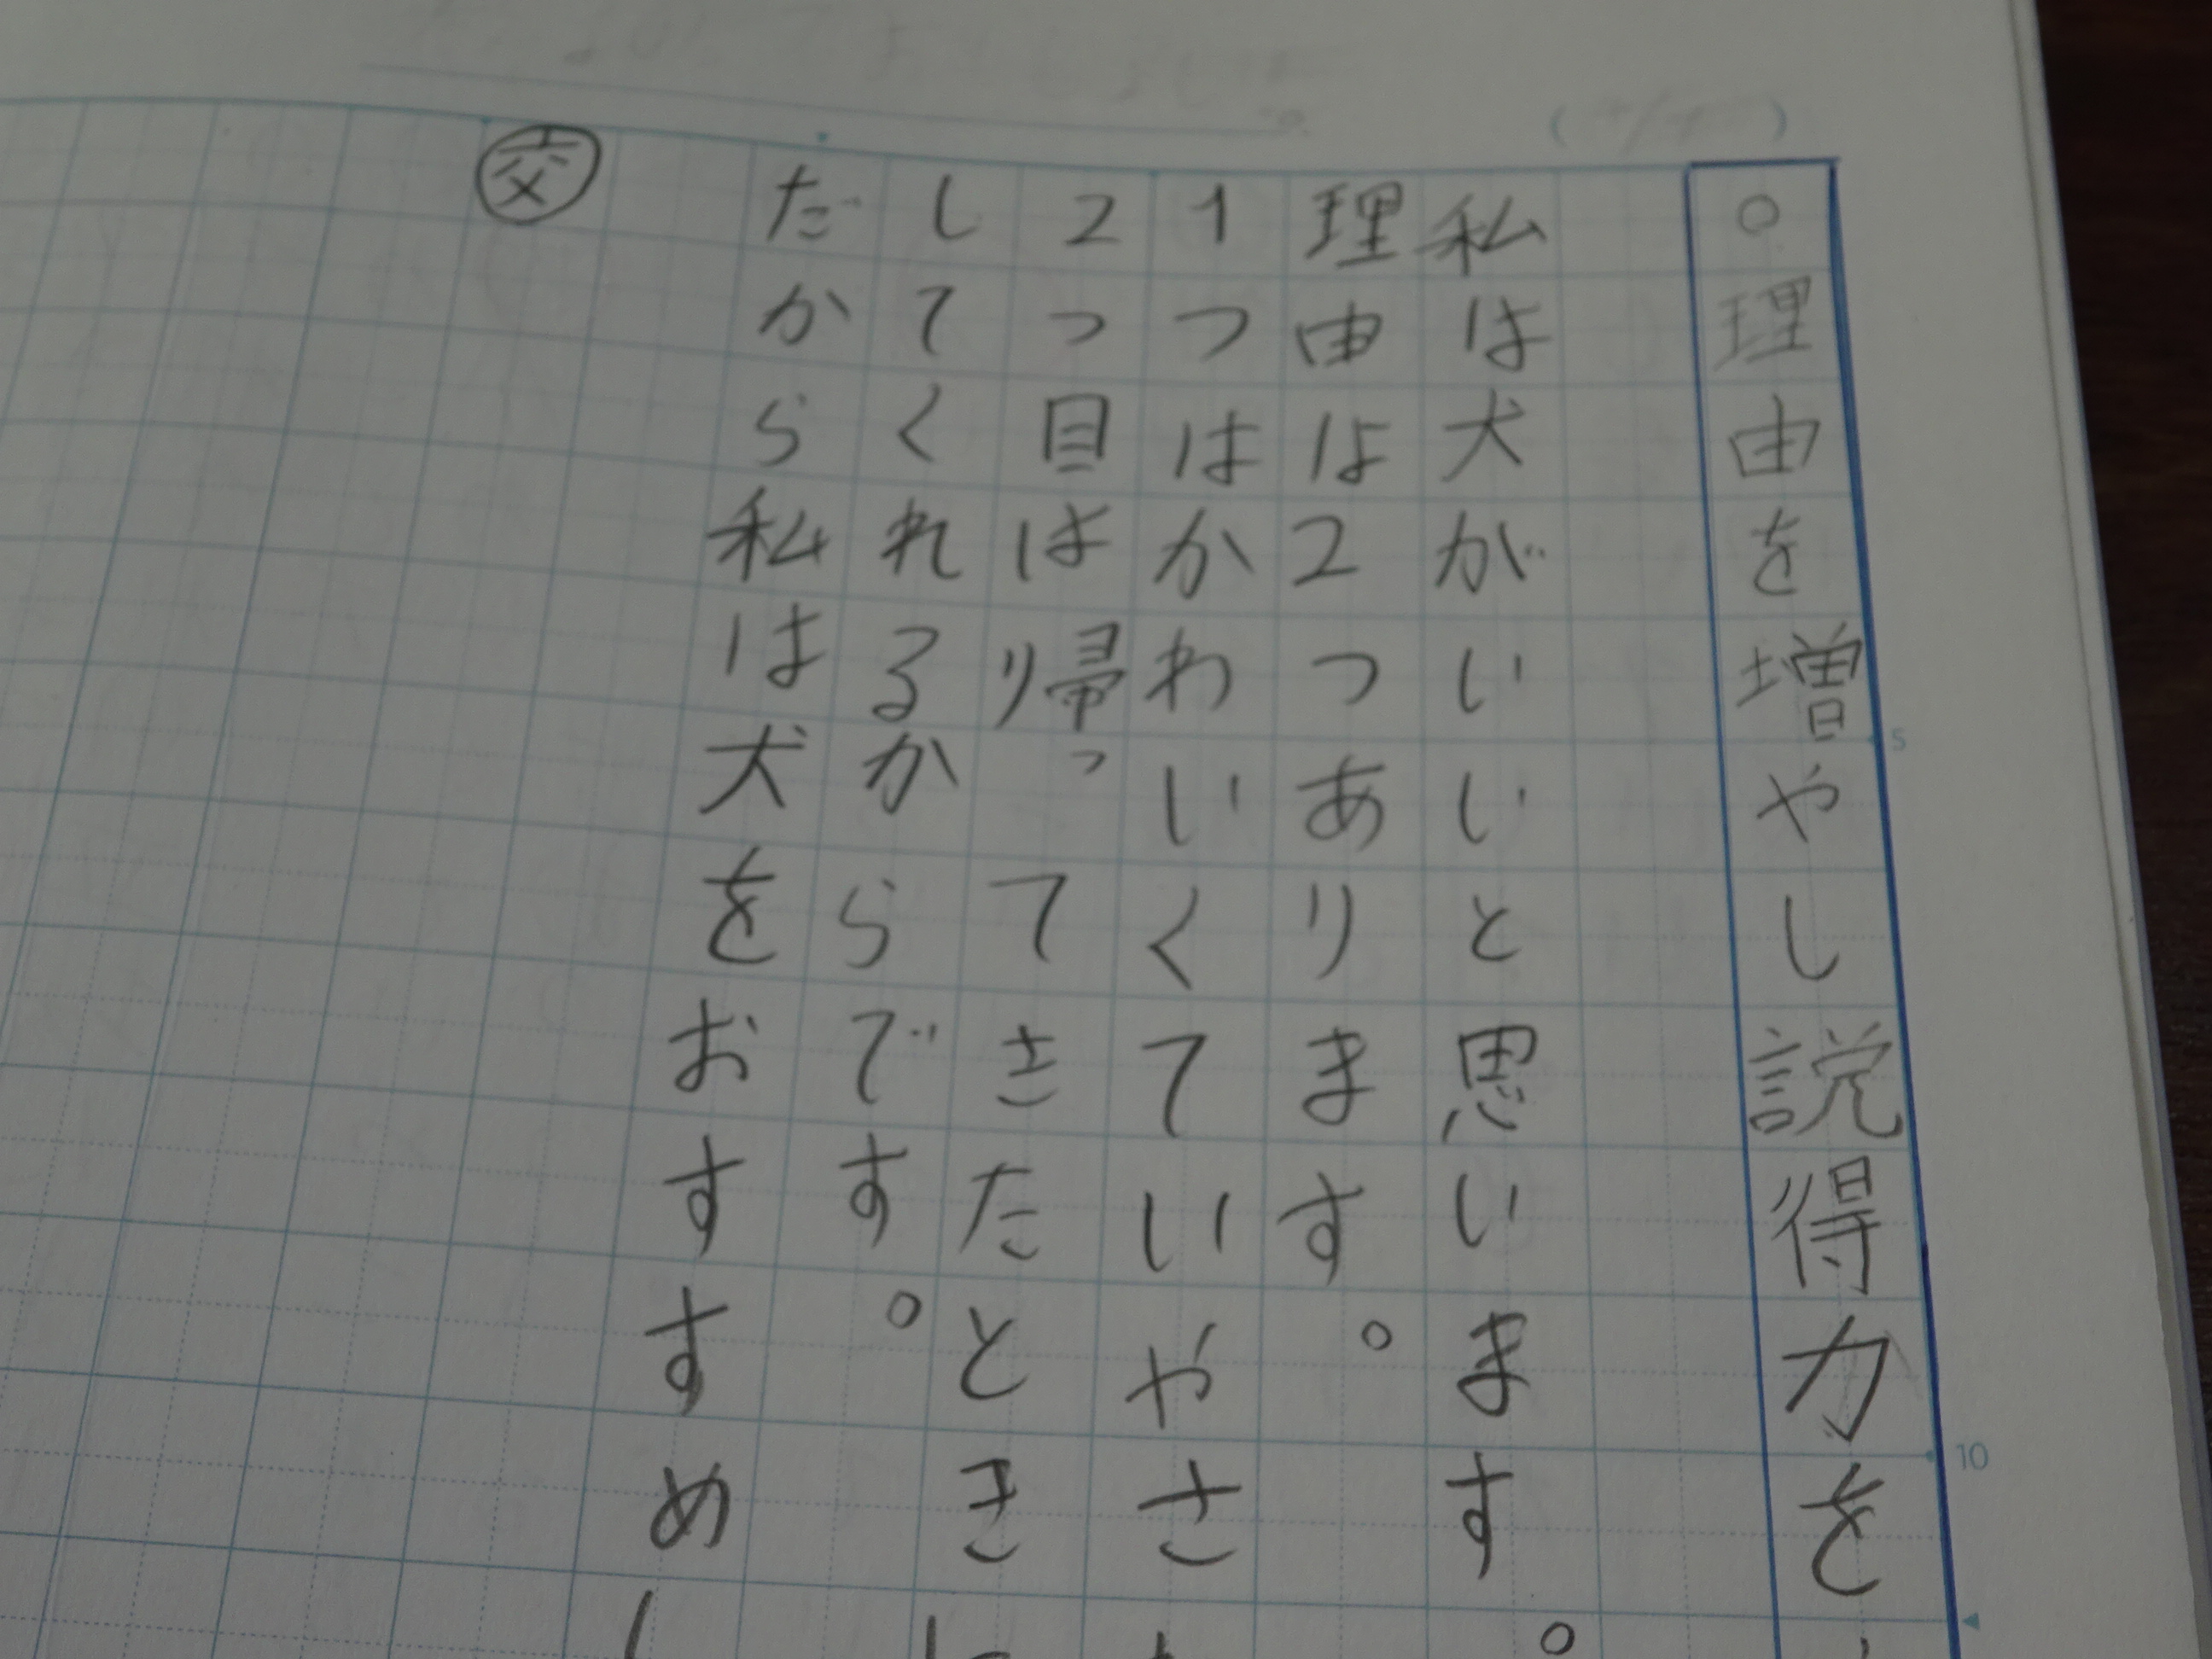 ○理由を増やし説得力を
私は犬がいいと思います。
理由は2つあります。
1つはかわいくていやさ
2っ目は帰ってきたとき
してくれるからです。
だから私は犬をおすすめ
交
5
10